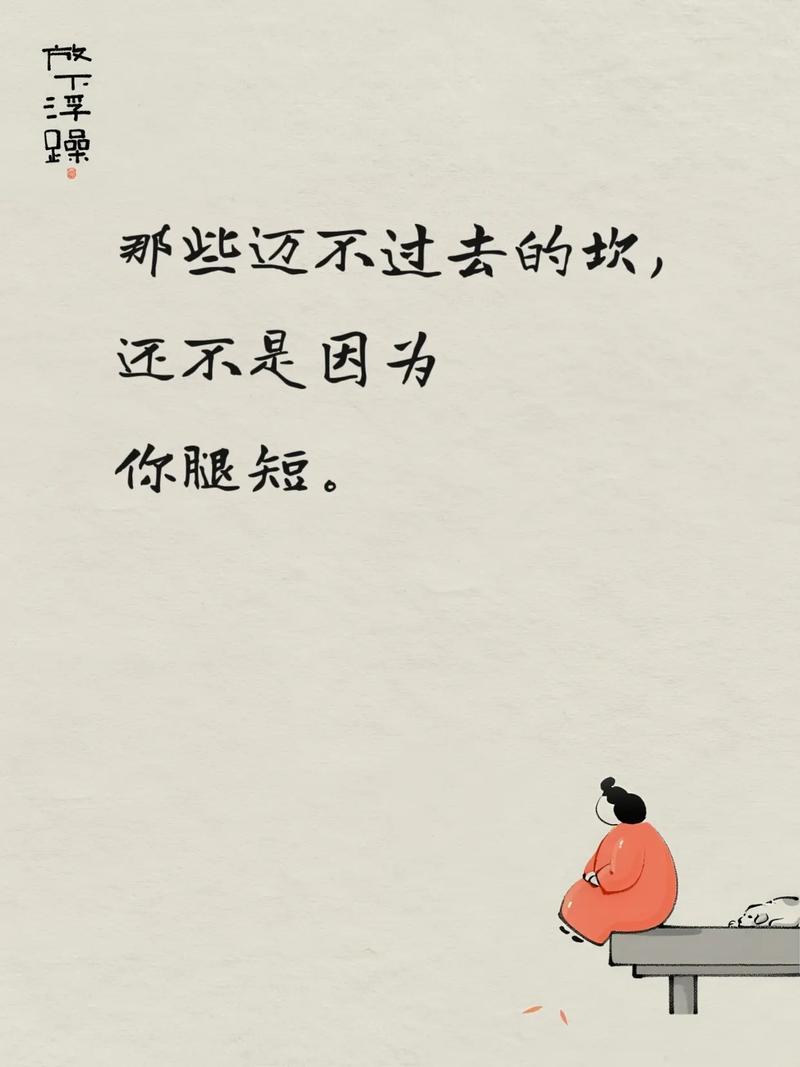 放下浮躁
那些迈不过去的坎，
还不是因为
你腿短。